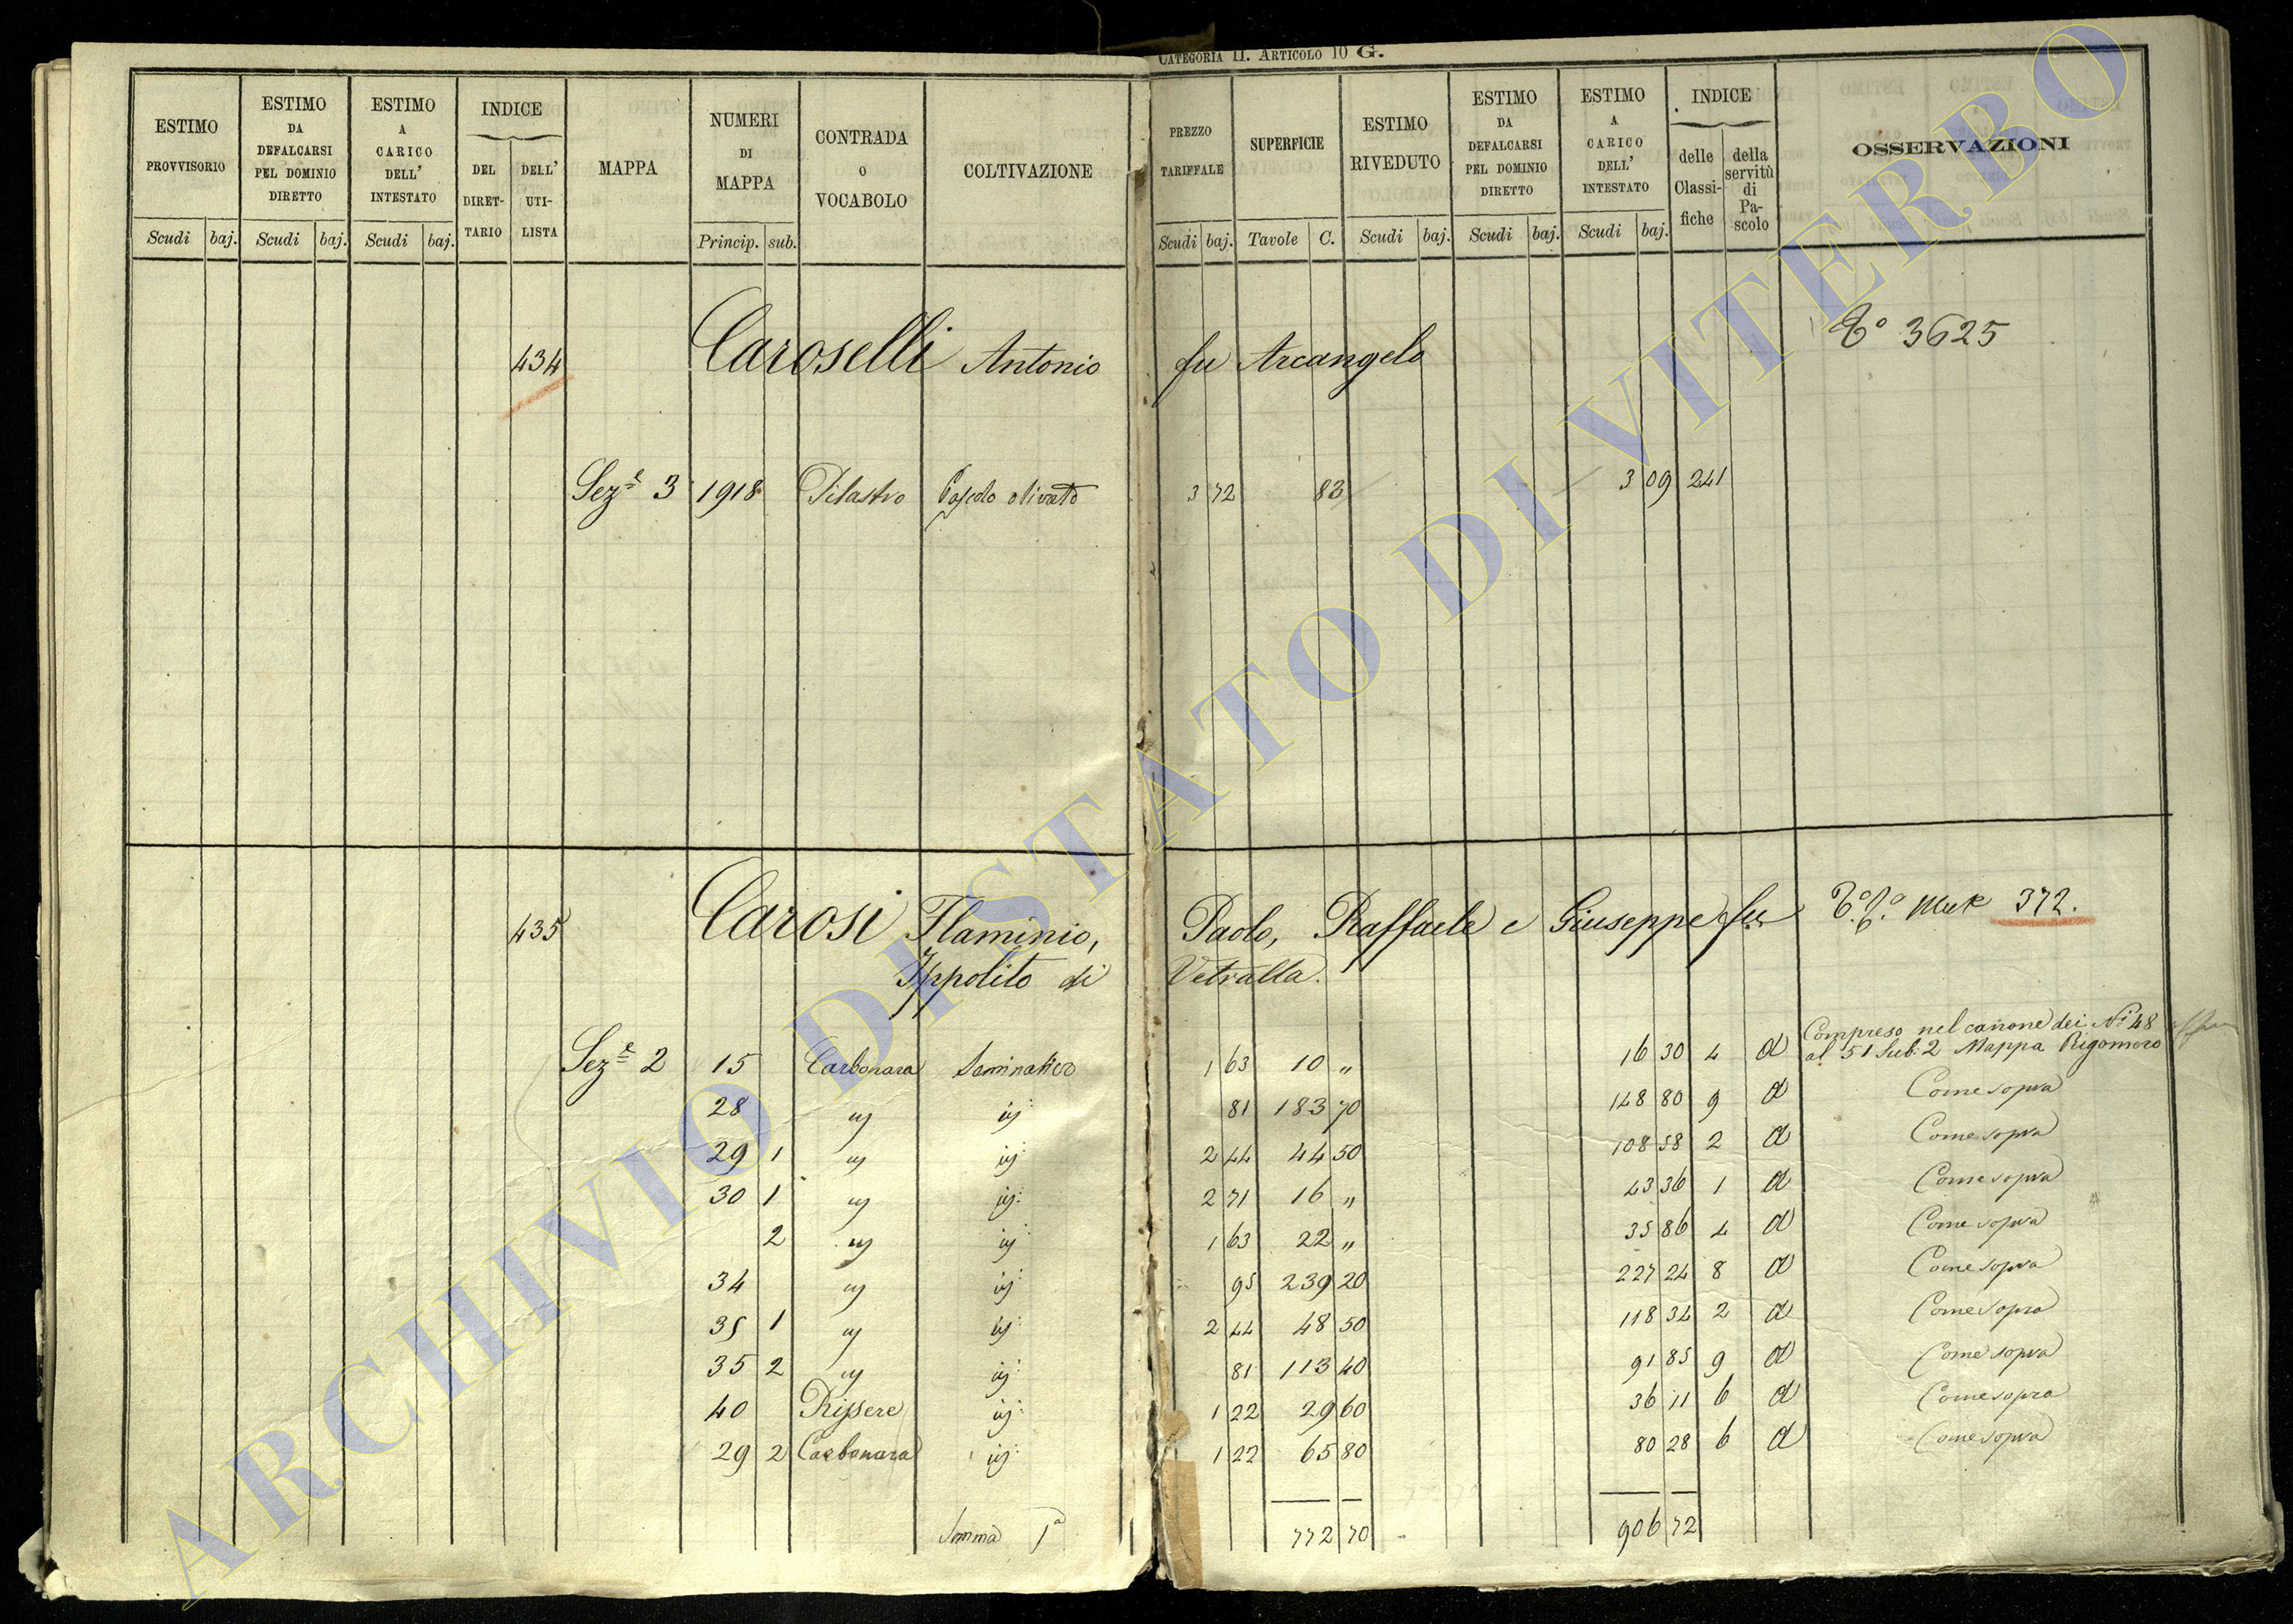 CATEGORIA II. ARTICOLO 10 G.
ESTIMO PROVVISORIO Scudi baj.
ESTIMO DA DEFALCARSI PEL DOMINIO DIRETTO Scudi baj.
ESTIMO A CARICO DELL' INTESTATO Scudi baj.
INDICE DEL DIRET-TARIO DELL' UTI-LISTA
MAPPA
NUMERI DI MAPPA Princip. sub.
CONTRADA O VOCABOLO
COLTIVAZIONE
PREZZO TARIFFALE Scudi baj.
SUPERFICIE Tavole C.
ESTIMO RIVEDUTO Scudi baj.
ESTIMO DA DEFALCARSI PEL DOMINIO DIRETTO Scudi baj.
ESTIMO A CARICO DELL' INTESTATO Scudi baj.
INDICE delle Classi-fiche della servitù di Pa-scolo
OSSERVAZIONI
434 Caroselli Antonio fu Arcangelo 3625
Sez.e 3 1918 Pilastro Pascolo olivato 3 72 83 3 09 241
435 Carosi Flaminio, Paolo, Raffaele e Giuseppe fu 372.
Ippolito di Vetralla.
Compreso nel canone dei Ni 48
Sez.e 2 15 Carbonara Seminativo 1 63 10 " 16 30 4 a al 51 Sub: 2 Mappa Rigomero
28 " id: 81 183 70 148 80 9 a Come sopra
29 1 " id: 2 44 44 50 108 58 2 a Come sopra
30 1 " id: 2 71 16 " 43 36 1 a Come sopra
2 " id: 1 63 22 " 35 86 4 a Come sopra
34 " id: 95 239 20 227 24 8 a Come sopra
35 1 " id: 2 44 48 50 118 34 2 a Come sopra
35 2 " id: 81 113 40 91 85 9 a Come sopra
40 Rissere id: 1 22 29 60 36 11 6 a Come sopra
29 2 Carbonara id: 1 22 65 80 80 28 6 a Come sopra
Somma 1a 772 70 906 72
ARCHIVIO DI STATO DI VITERBO